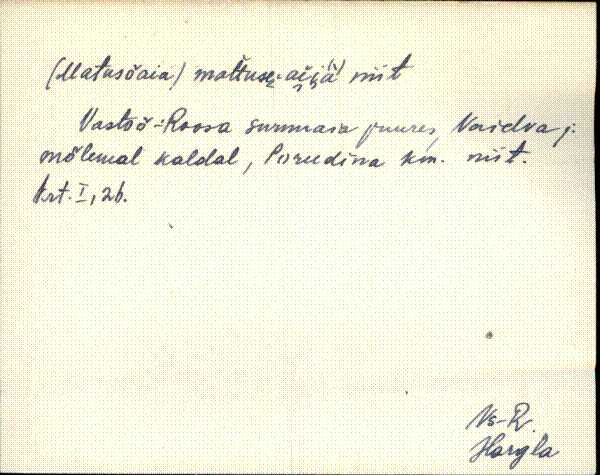 (Matusõaia) mattuse-aija(\) niit
Vastsõ-Roosa surnuaia juures, Vaidva j.
mõlemal kaldal, Porudina km. niit.
Krt. I, 26.
Vs-R.
Hargla